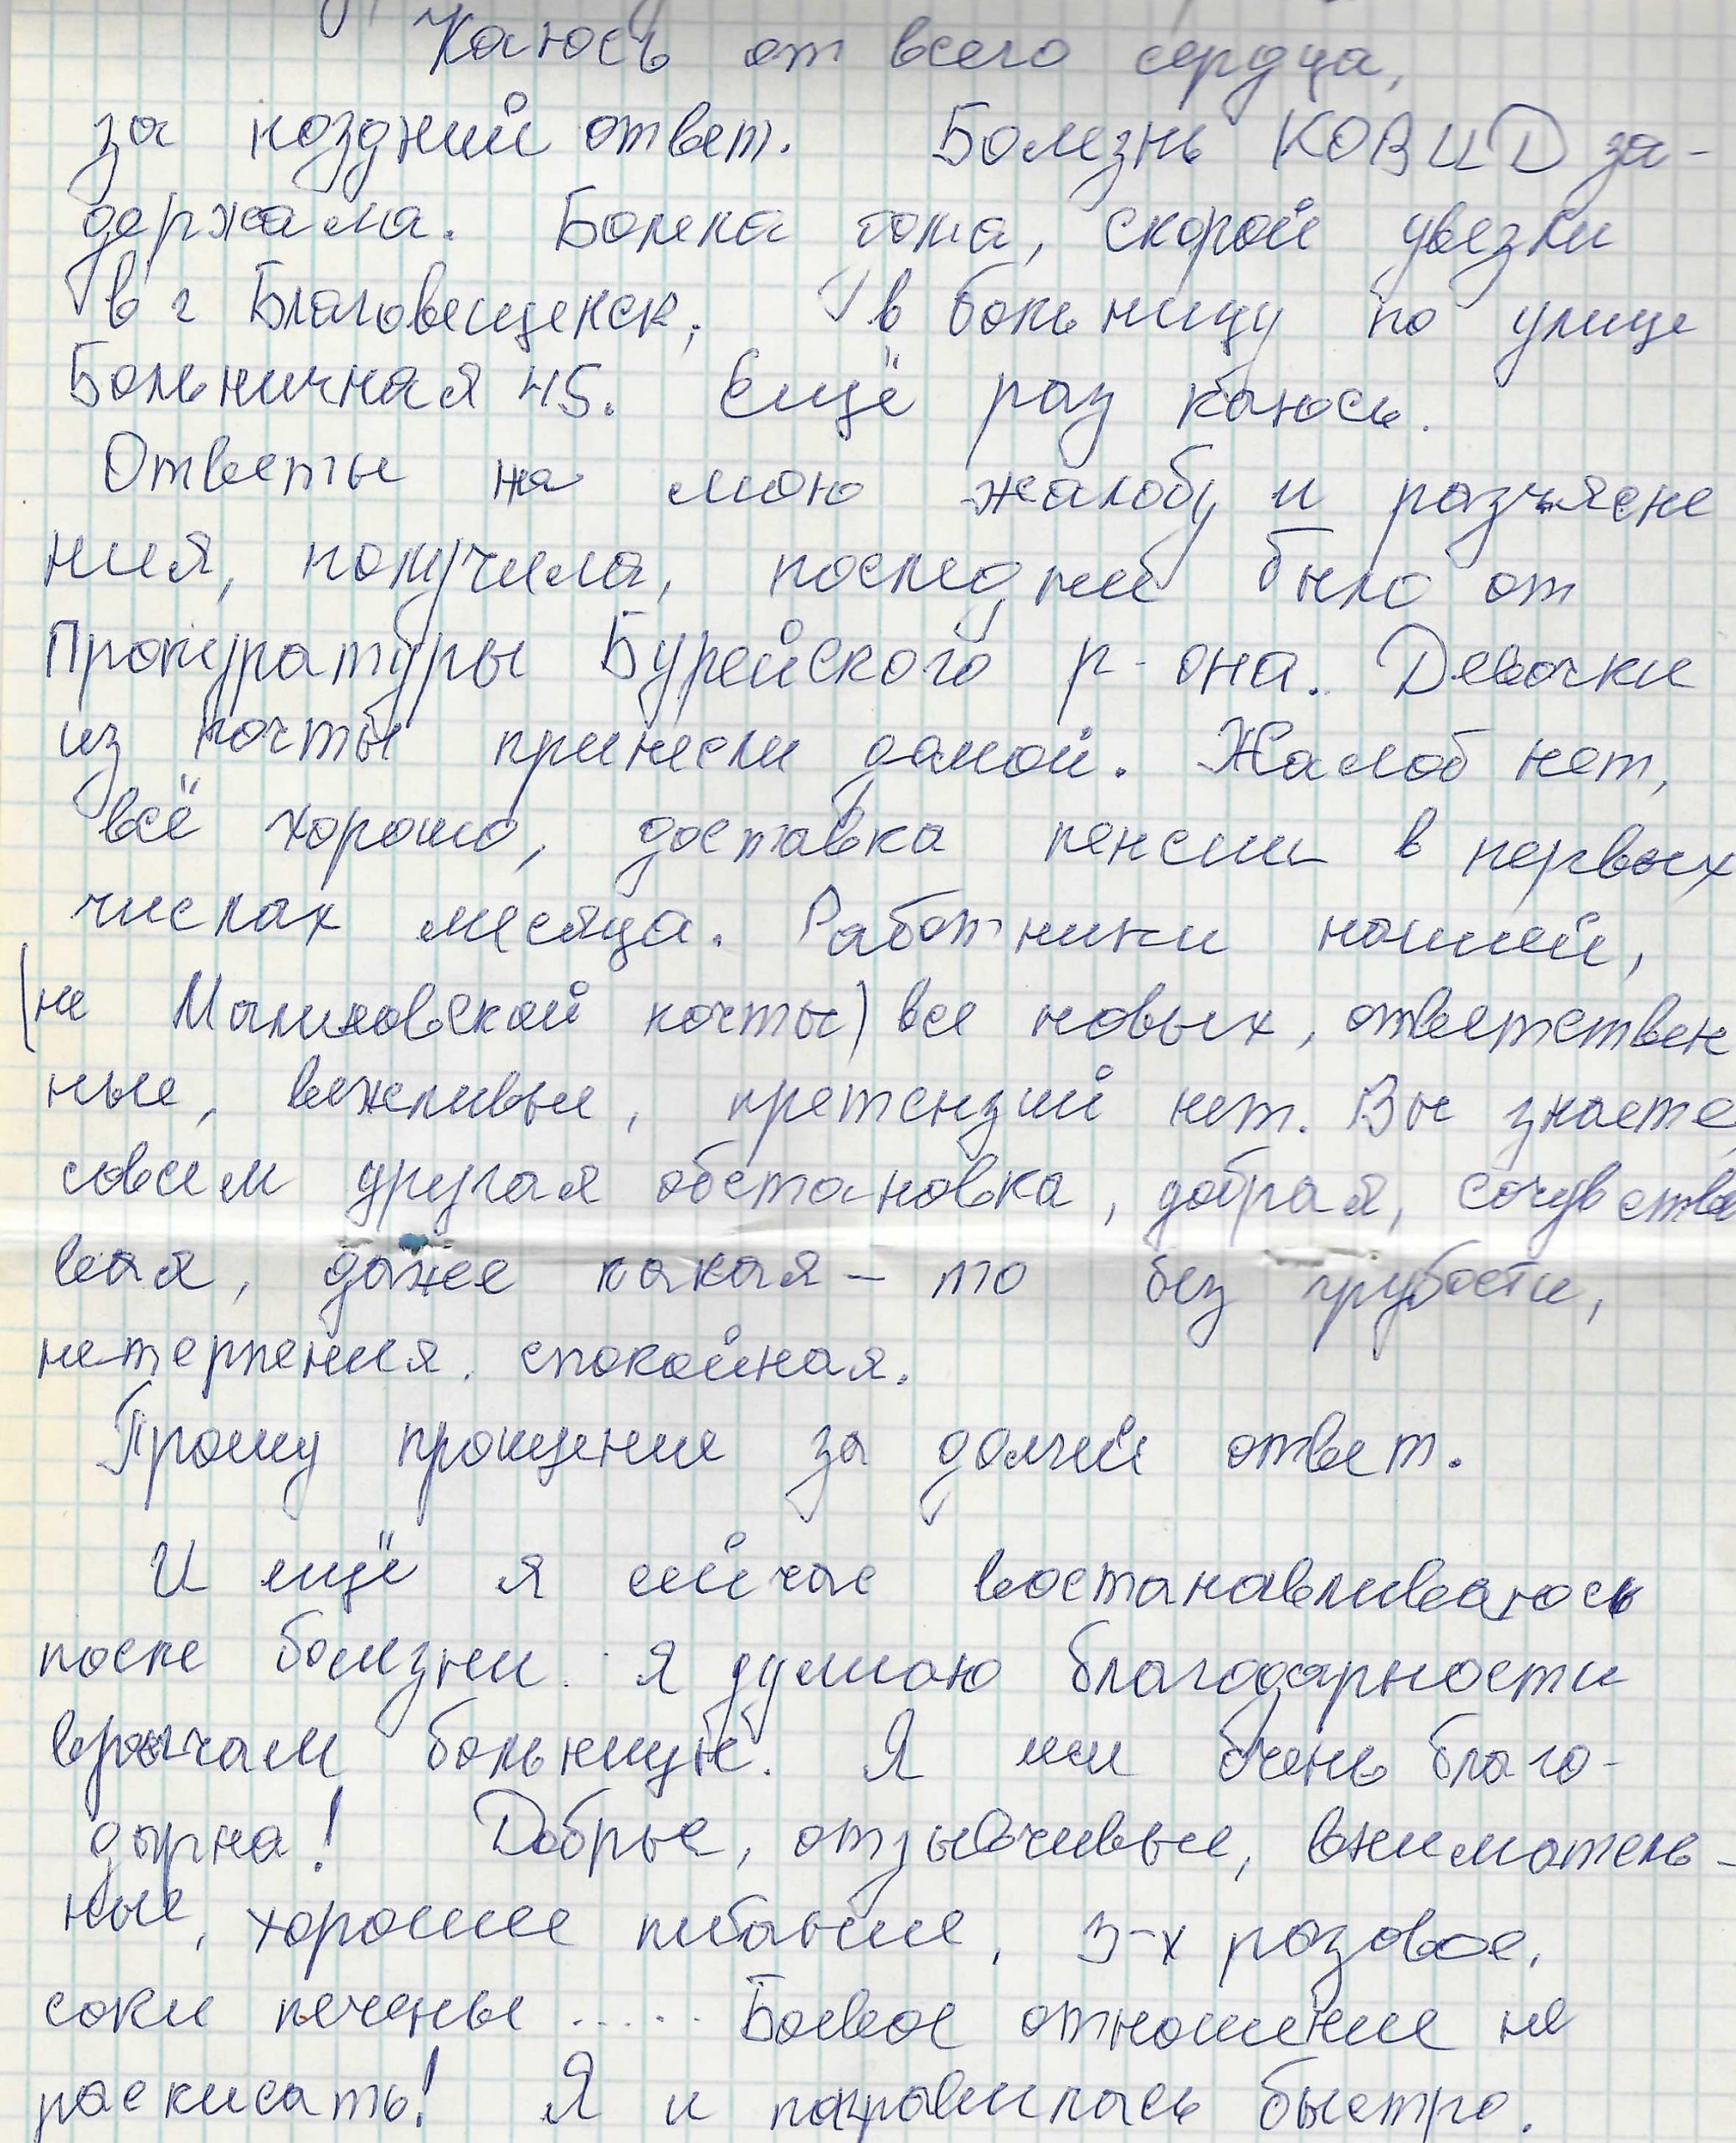 Каюсь от всего сердца,
за поздний ответ. Болезнь КОВИД за-
держала. Болела дома, скорой увезли
в г Благовещенск, в больницу по улице
Больничная 45. Ещё раз каюсь.
Ответы на мою жалобу и разъясне
ния, получила, последний было от
Прокуратуры Бурейского р-она. Девочки
из почты принесли домой. Жалоб нет,
всё хорошо, доставка пенсии в первых
числах месяца. Работники нашей,
(не Малиновской почты) все новых, ответствен
ные, вежливые, претензий нет. Вы знаете,
совсем другая обстановка, добрая, сочувств
вая, даже какая-то без грубости,
нетерпения, спокойная.
Прошу прощение за долгий ответ.
И ещё я сейчас востанавливаюсь
после болезни. Я думаю благодарности
врачам больницы. Я им очень благо-
дарна! Добрые, отзывчивые, вниматель-
ные, хорошее питание, 3-х разовое,
соки печенье ..... Боевое отношение не
раскисать! Я и поправилась быстро.